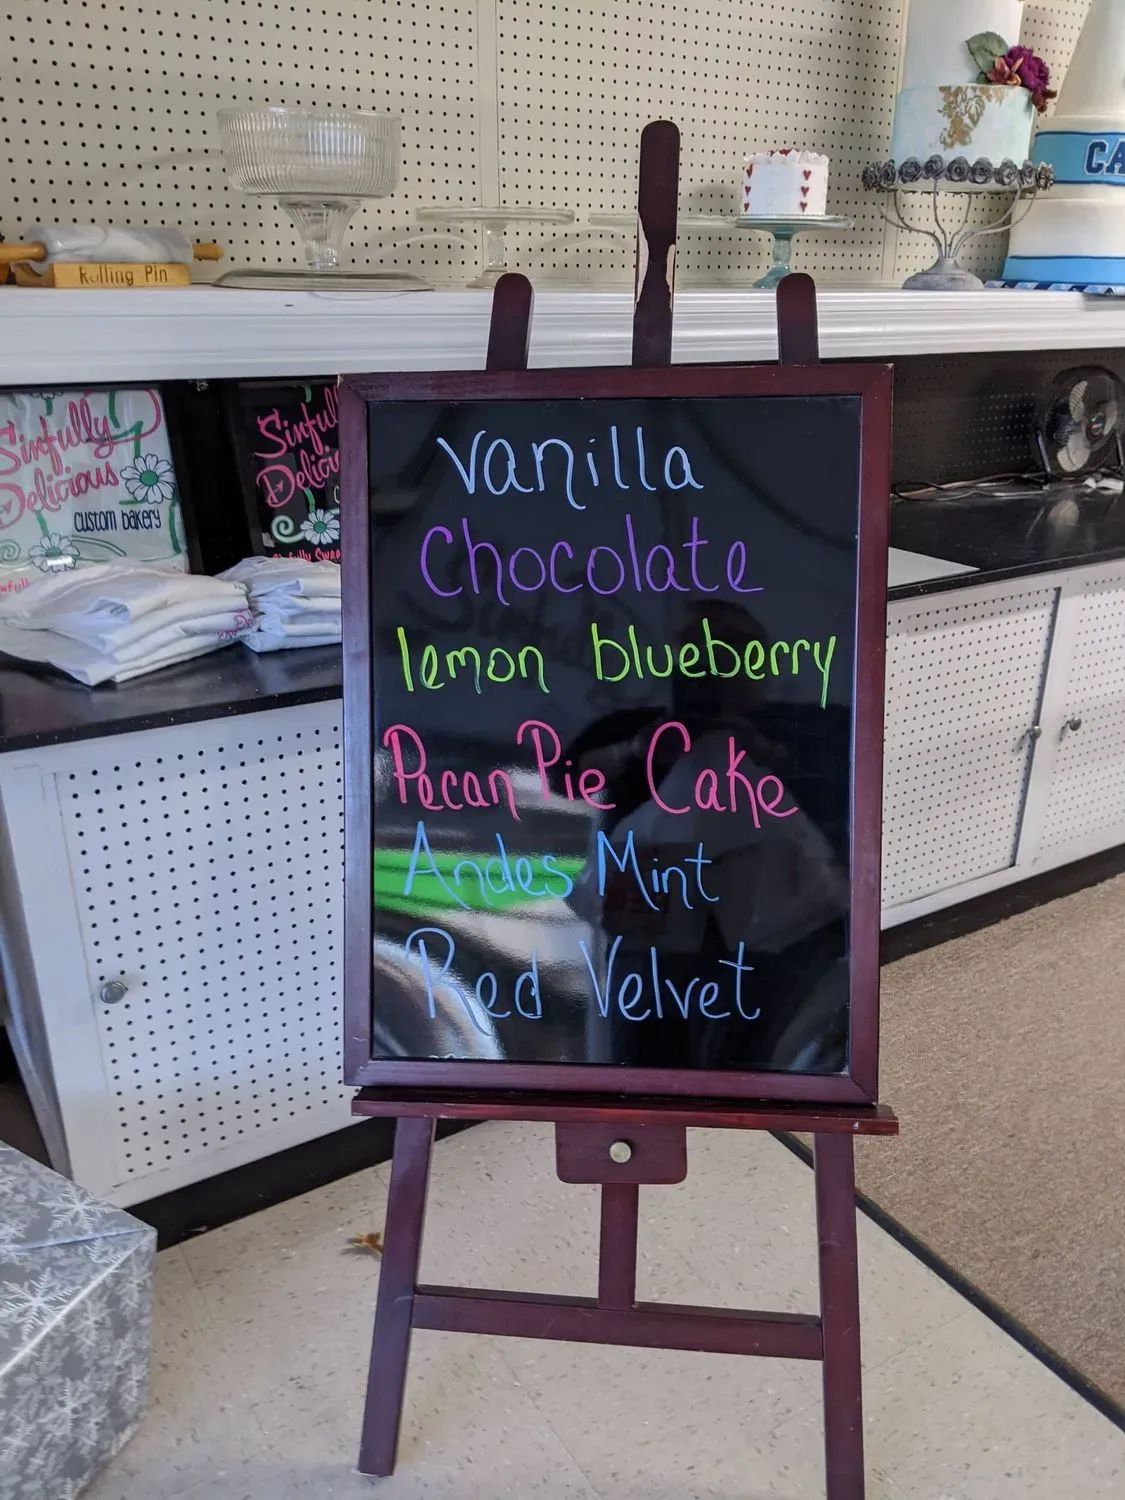 CA
Rolling Pin
Sinfully
Delicious
custom bakery
Sinful
Delicio
vanilla
Chocolate
lemon blueberry
Pecan Pie Cake
Andes Mint
Red Velvet